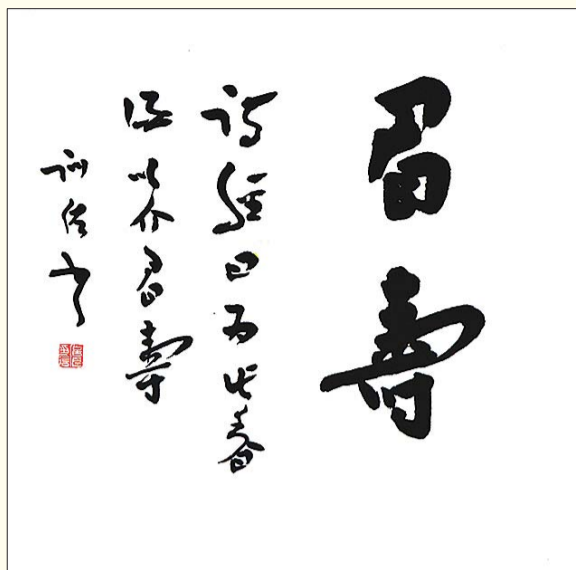 眉壽
詩經曰為此春
酒以介眉壽
訓佐書